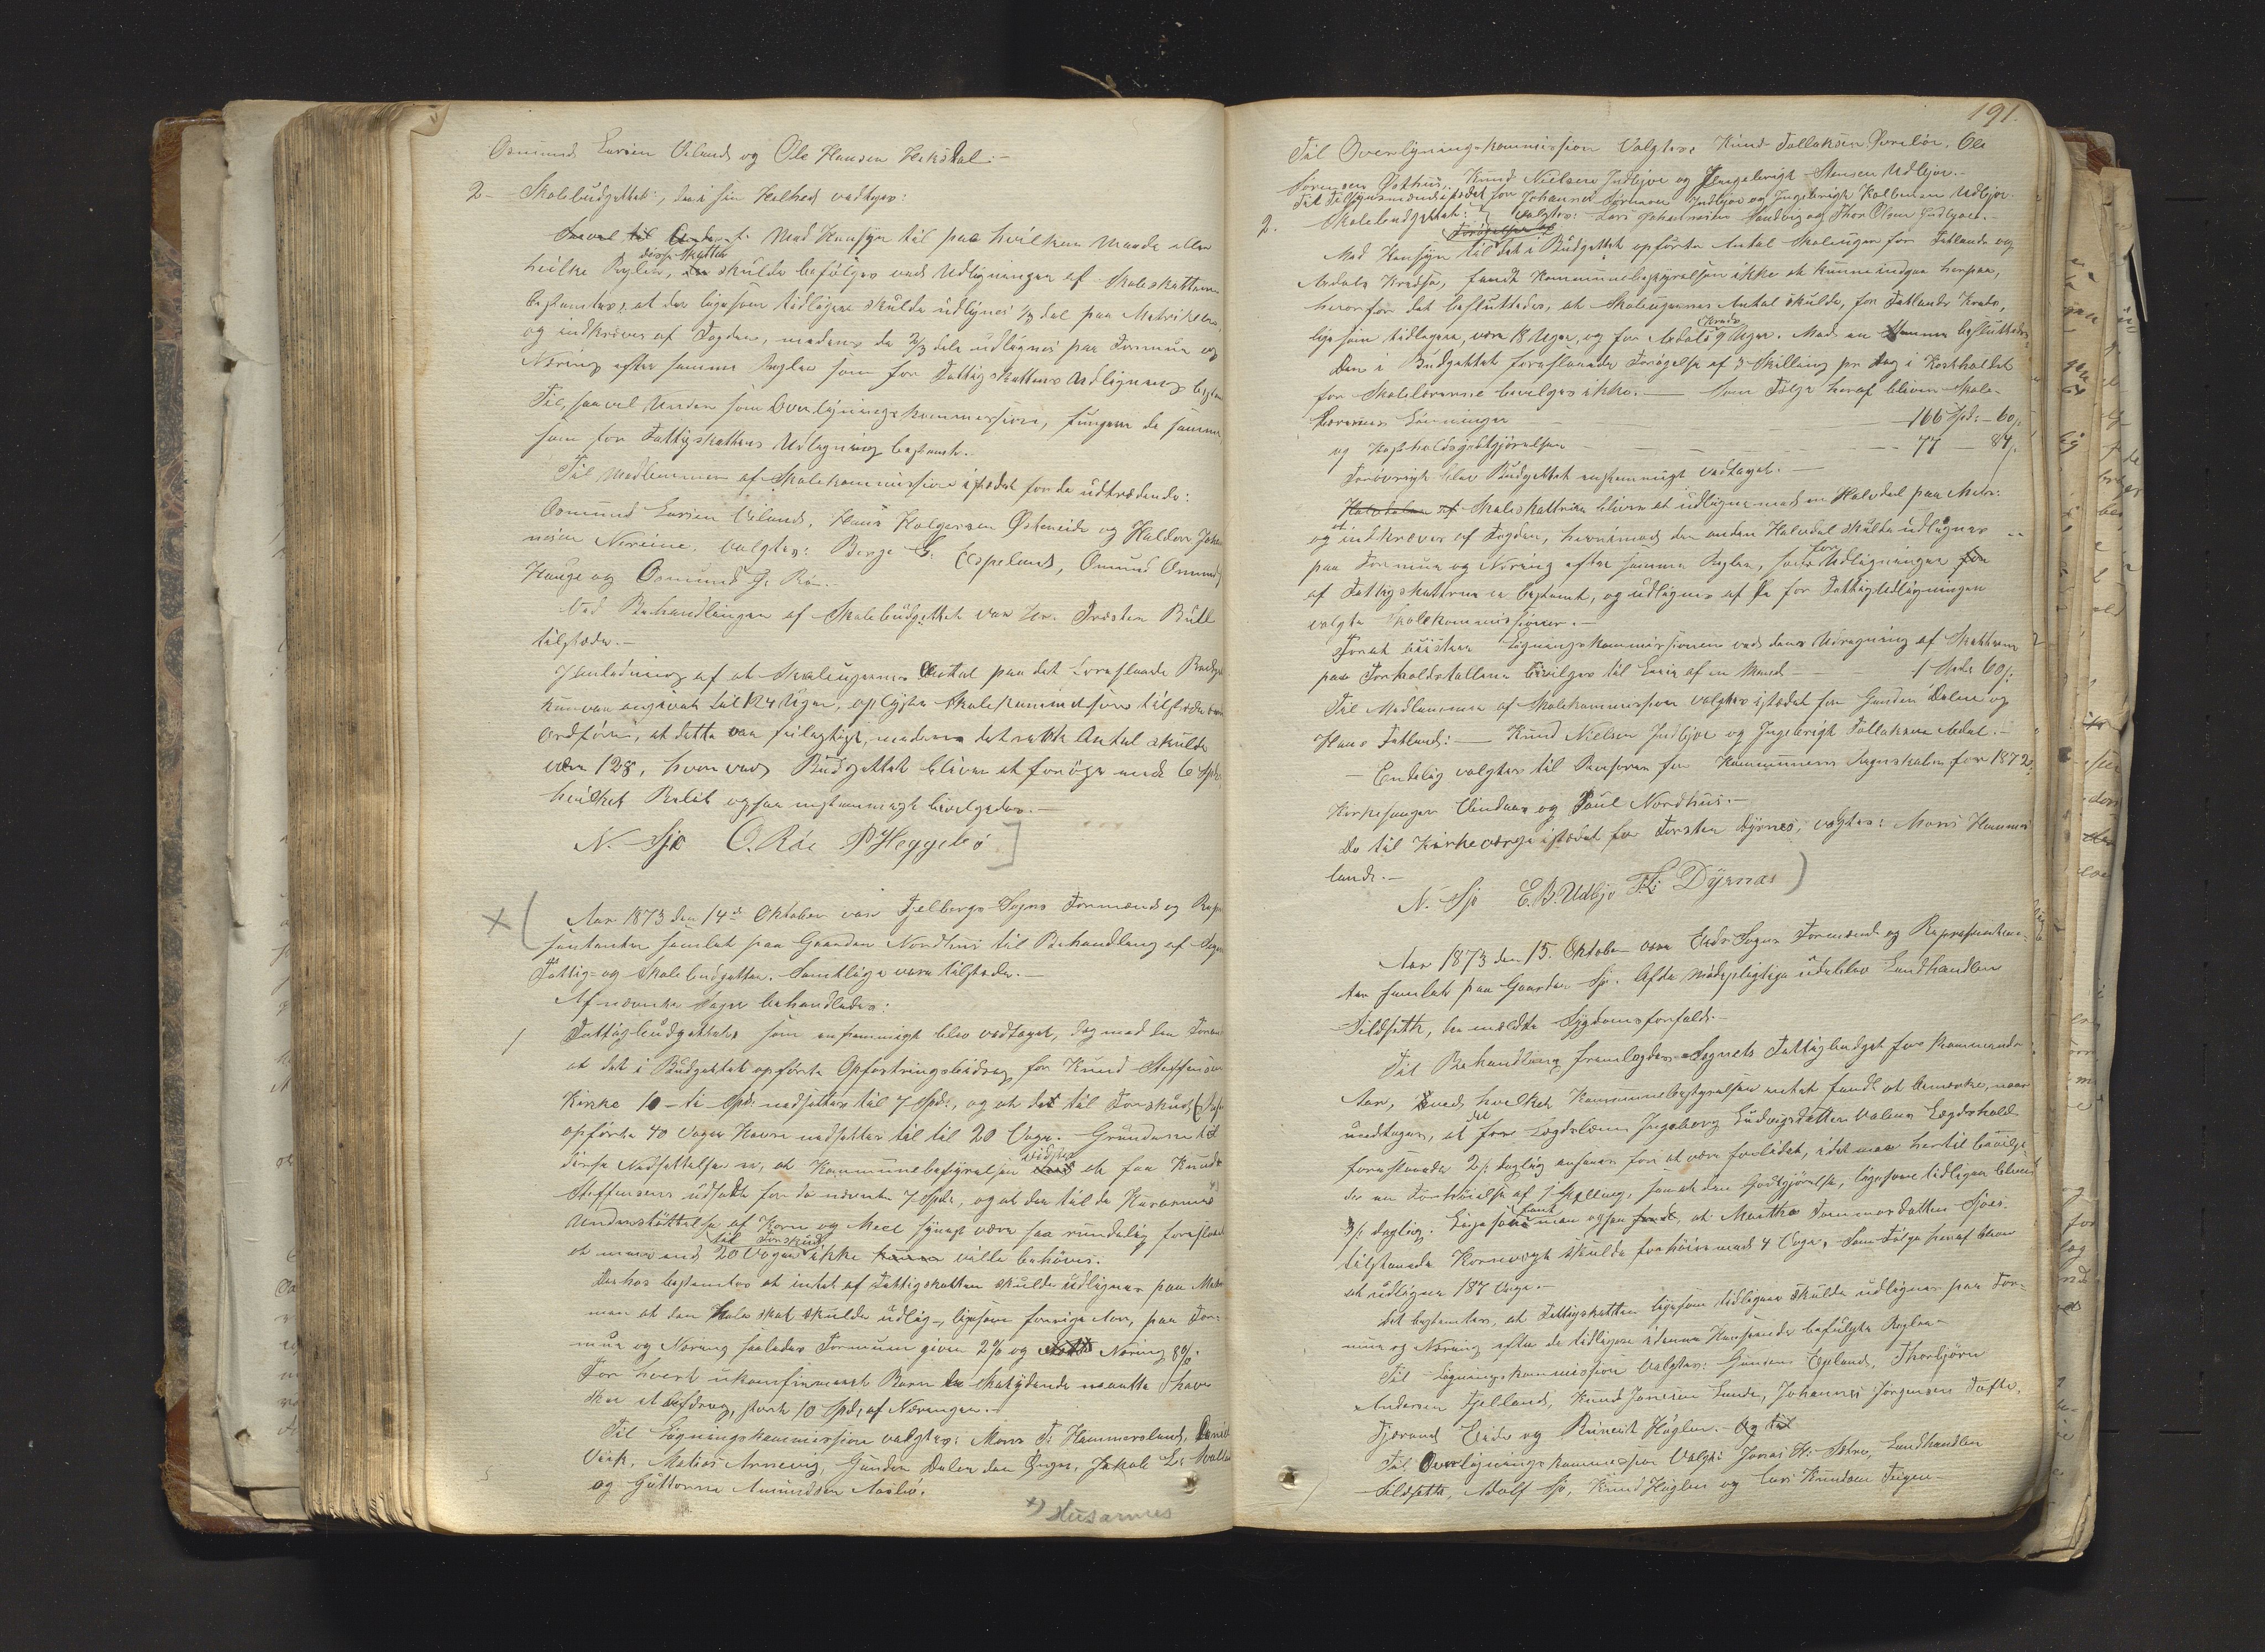 Osmund Larsen Ølund og Ole Hansen Hekstal.-
2- Skolebudgettet, der i sin Helhed vedtoges:
Saavel til t. Med Hensyn til paa hvilken Maade eller
hvilke Regler, disse Skatter skulde befølges ved Udligningen af Skoleskatten
bestemtes, at der ligesom tidligere skulde udlignes 1/3 del paa Matrikelen
og indkræves af Fogden, medens de 2/3 dele udlignes paa Formue og
Næring efter samme Regler som for Fattigskattens Udligning bestemt
Til, saavel Under som Overligningskommission, fungere de samme,
som for Fattigskattens Udligning bestemt.
Til Medlemmer af Skolekommission istedet for de udtrædende:
Osmund Larsen Ølund, Hans Holgersen Østeneide og Haldor Joha
nesen Nereine, valgtes: Berge G. Espeland, Omund Omunds
Hauge og Osmund J. Røe.-
Ved Behandlingen af Skolebudgettet var Hr. Præsten Bull
tilstede.-
I Anledning af at Skoleugernes Antal paa det foreslaaede Budget
kun var angivet til 124 Uger, oplyste Skolekommissionens tilstedeværende
Ordfører, at dette var feilagtigt, medens det rette Antal skulde
være 128, hvorved Budgettet bliver at forøge med 6 Spd.
hvilket Beløb ogsaa enstemmigt bevilgedes.-
N. Sjo O. Røe P Heggebø
Aar 1873 den 14de Oktober var Fjelbergs Sogns Formænd og Repræ
sentanter samlet paa Gaarden Nordhus til Behandling af Sogn
Fattig- og Skolebudgetter. Samtlige vare tilstede.-
Af nævnte Sager behandledes:
1 Fattigbudgettet som enstemmigt blev vedtaget, dog med den Foran
at det i Budgettet opførte Opfostringsbidrag for Knud Steffensen
Kirke 10 - ti Spd. nedsættes til 7 Spd., og at det til Forskud
opførte 40 Voger Havre nedsættes til til 20 Voger. Grundene til
disse Nedsættelser er, at Kommunebestyrelsen vidste at faa Knud
Steffensen udsat for de nævnte 7 Spd., og at den til de Huarmes x)
Understøttelse af Korn og Meel synes være saa rundelig foreslaaet
at mere end 20 Voger til Forskud ikke vilde behøves.
Derhos bestemtes at intet af Fattigskatten skulde udlignes paa Matr
men at den hele skat skulde udlig-, ligesom forrige Aar, paa For-
mue og Næring saaledes Formuen given 2% og Næring 8%.
For hvert ukonfirmeret Barn den skatydende maatte have
sker et afdrag, stort 10 Spd, af Næringen.-
Til Ligningskommission valgtes: Mons T. Hammersland, Daniel
Viik, Matias Arnevig, Gunder Dalen den Yngre, Jakob L.
og Guttorm Amundsen Aaslie.
x) Husarmes
191.
Til Overligningskommission Valgtes Knud Tollaksen Øvrelie, Ole
Sørensen Østhus, Knud Nielsen Indbjoe og Ingebrigt Stensen Udbjoe.-
Til Tilsynsmænd istedet for Johannes Sørensen Indbjoe og Ingebrigt Kolbensen Udbjoe
2. Skolebudgettet: valgtes: Lars Johannesen Sandvig og Thor Olsen Indbjoe.-
Med Hensyn til det i Budgettet opførte Antal Skoleuger for Fatlands og
Aadals Kredse, fandt Kommunebestyrelsen ikke at kunne indgaa herpaa,
hvorfor det besluttedes, at Skoleugernes Antal skulde, for Fatlands Kreds,
ligesom tidligere, være 18 Uger, og for Aadals Kreds 9 Uger. Med en Stemme besluttedes
Den i Budgettet foreslaaede Forøgelse af 3 Skilling pr Dag i Kostholdet
for Skolelærerne bevilges ikke. - Som Følge heraf bliver Skole-
lærernes Lønninger - - - 166 Spd: - 60/
og Kostholdsgodtgjørelsen - - - 77 - 84/.
Forøvrigt blev Budgettet enstemmigt vedtaget.-
Halvdelen af Skoleskatten bliver at udligne med en Halvdel paa Matr:
og at indkræves af Fogden, hvorimod den anden Halvdel skulde udlignes
paa Formue og Næring efter samme Regler, som for Udligningen
af Fattigskatten er bestemt, og udlignes af de for Fattigudligningen
valgte Skolekommissioner.-
For at assistere Ligningskommissionen ved dens Udregning af Skatterne
paa Forholdstallene bevilges til Leie af en Mand - - 1 Mark 60/:
Til Medlemmer af Skolekommission valgtes istedet for Gunder Dalen og
Hans Fatland: - Knud Nielsen Indbjoe og Ingebrigt Tollaksen Aadal.-
- Endelig valgtes til Revisorer for Kommunens Regnskaber for 1872:
Kirkesanger Vindenes og Poul Nordhus.-
Do til Kirkeværge istedet for Torsten Dyrnes, valgtes: Mons Hammers
land.-
N. Sjo E.B. Udbjo T. L. Dyrnes
Aar 1873 den 15. Oktober vare Eids Sogns Formænd og Repræsentan-
ter samlet paa Gaarden Sjo. Af de mødepligtige udeblev Landhandler
Sildseth, der meldte Sygdomsforfald.-
Til Behandling fremlagdes Sognets Fattigbudget for kommende
Aar, ved hvilket Kommunebestyrelsen intet fandt at bemærke, naar
undtages, at det for Lægdslem Ingeborg Ludvigsdatter Valens Lægdshold
foreslaaede 2/: daglig ansaaes for at være for lidet, idet man hertil bevilge-
de en Forhøielse af 1 Skilling, saa at den Godtgjørelse, ligesom tidligere bliver
3/: daglig. Ligesom man ogsaa fandt, at Martha Tommasdatter Sjoes
tilstaaede Kornvægt skulde forhøies med 4 Voger. Som Følge heraf bliver
at udligne 187 Voger.-
Det bestemtes, at Fattigskatten ligesom tidligere skulde udlignes paa For-
mue og Næring efter de tidligere i denne Henseende befulgte Regler.-
Til Ligningskommission valgtes: Gunder Opland, Thorbjørn
Andersen Fjelland, Knud Jonesen Lunde, Johannes Jørgensen Tofte,
Fjerand Eide og Reinert Høglen.- Og til
Til Overligningskommission Valgtes Jonas H. Sætre, Landhandler
Sildseth, Adolf Sjo, Knud Høglen og Lars Knudsen Teigen-